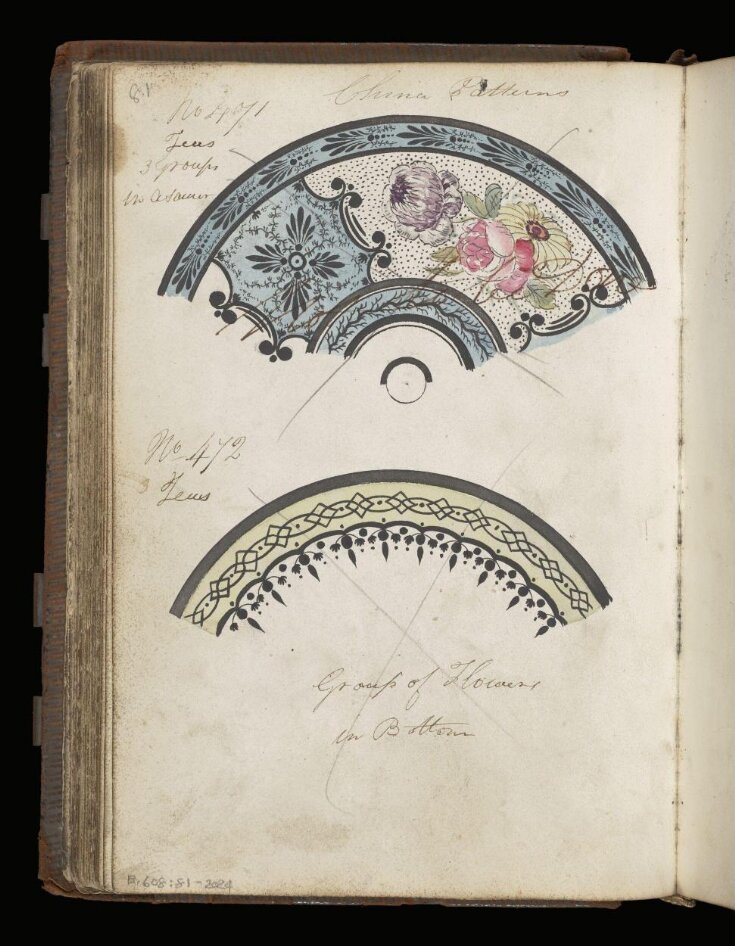 81
China Patterns
No 471
Teas
3 Groups
in a Saucer
No 472
3 Teas
Group of Flowers
in Bottom
E.608:81-2024